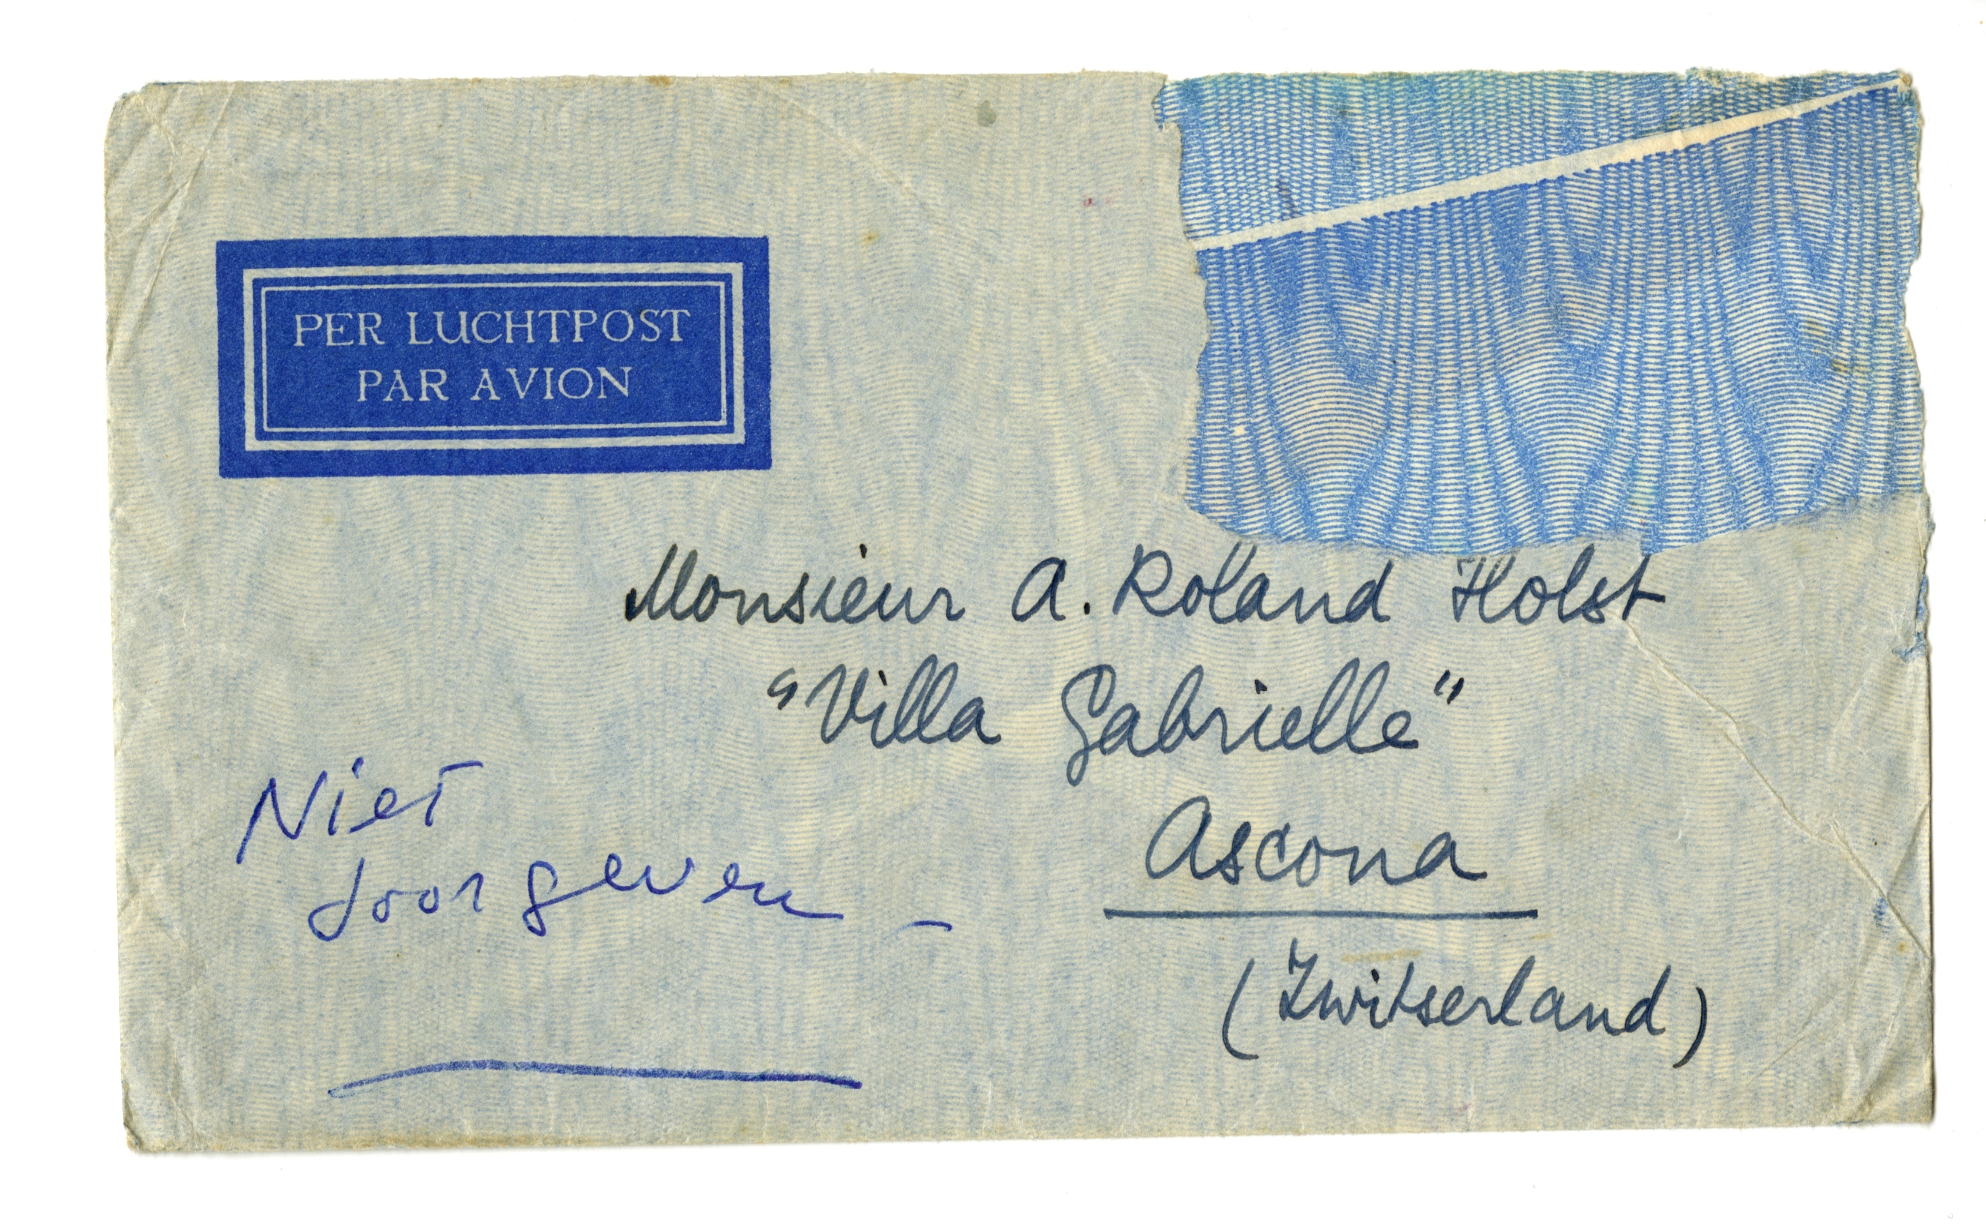 PER LUCHTPOST
PAR AVION
Monsieur A. Roland Holst
"Villa Gabrielle"
Ascona
(Zwitserland)
Niet
doorgeven –